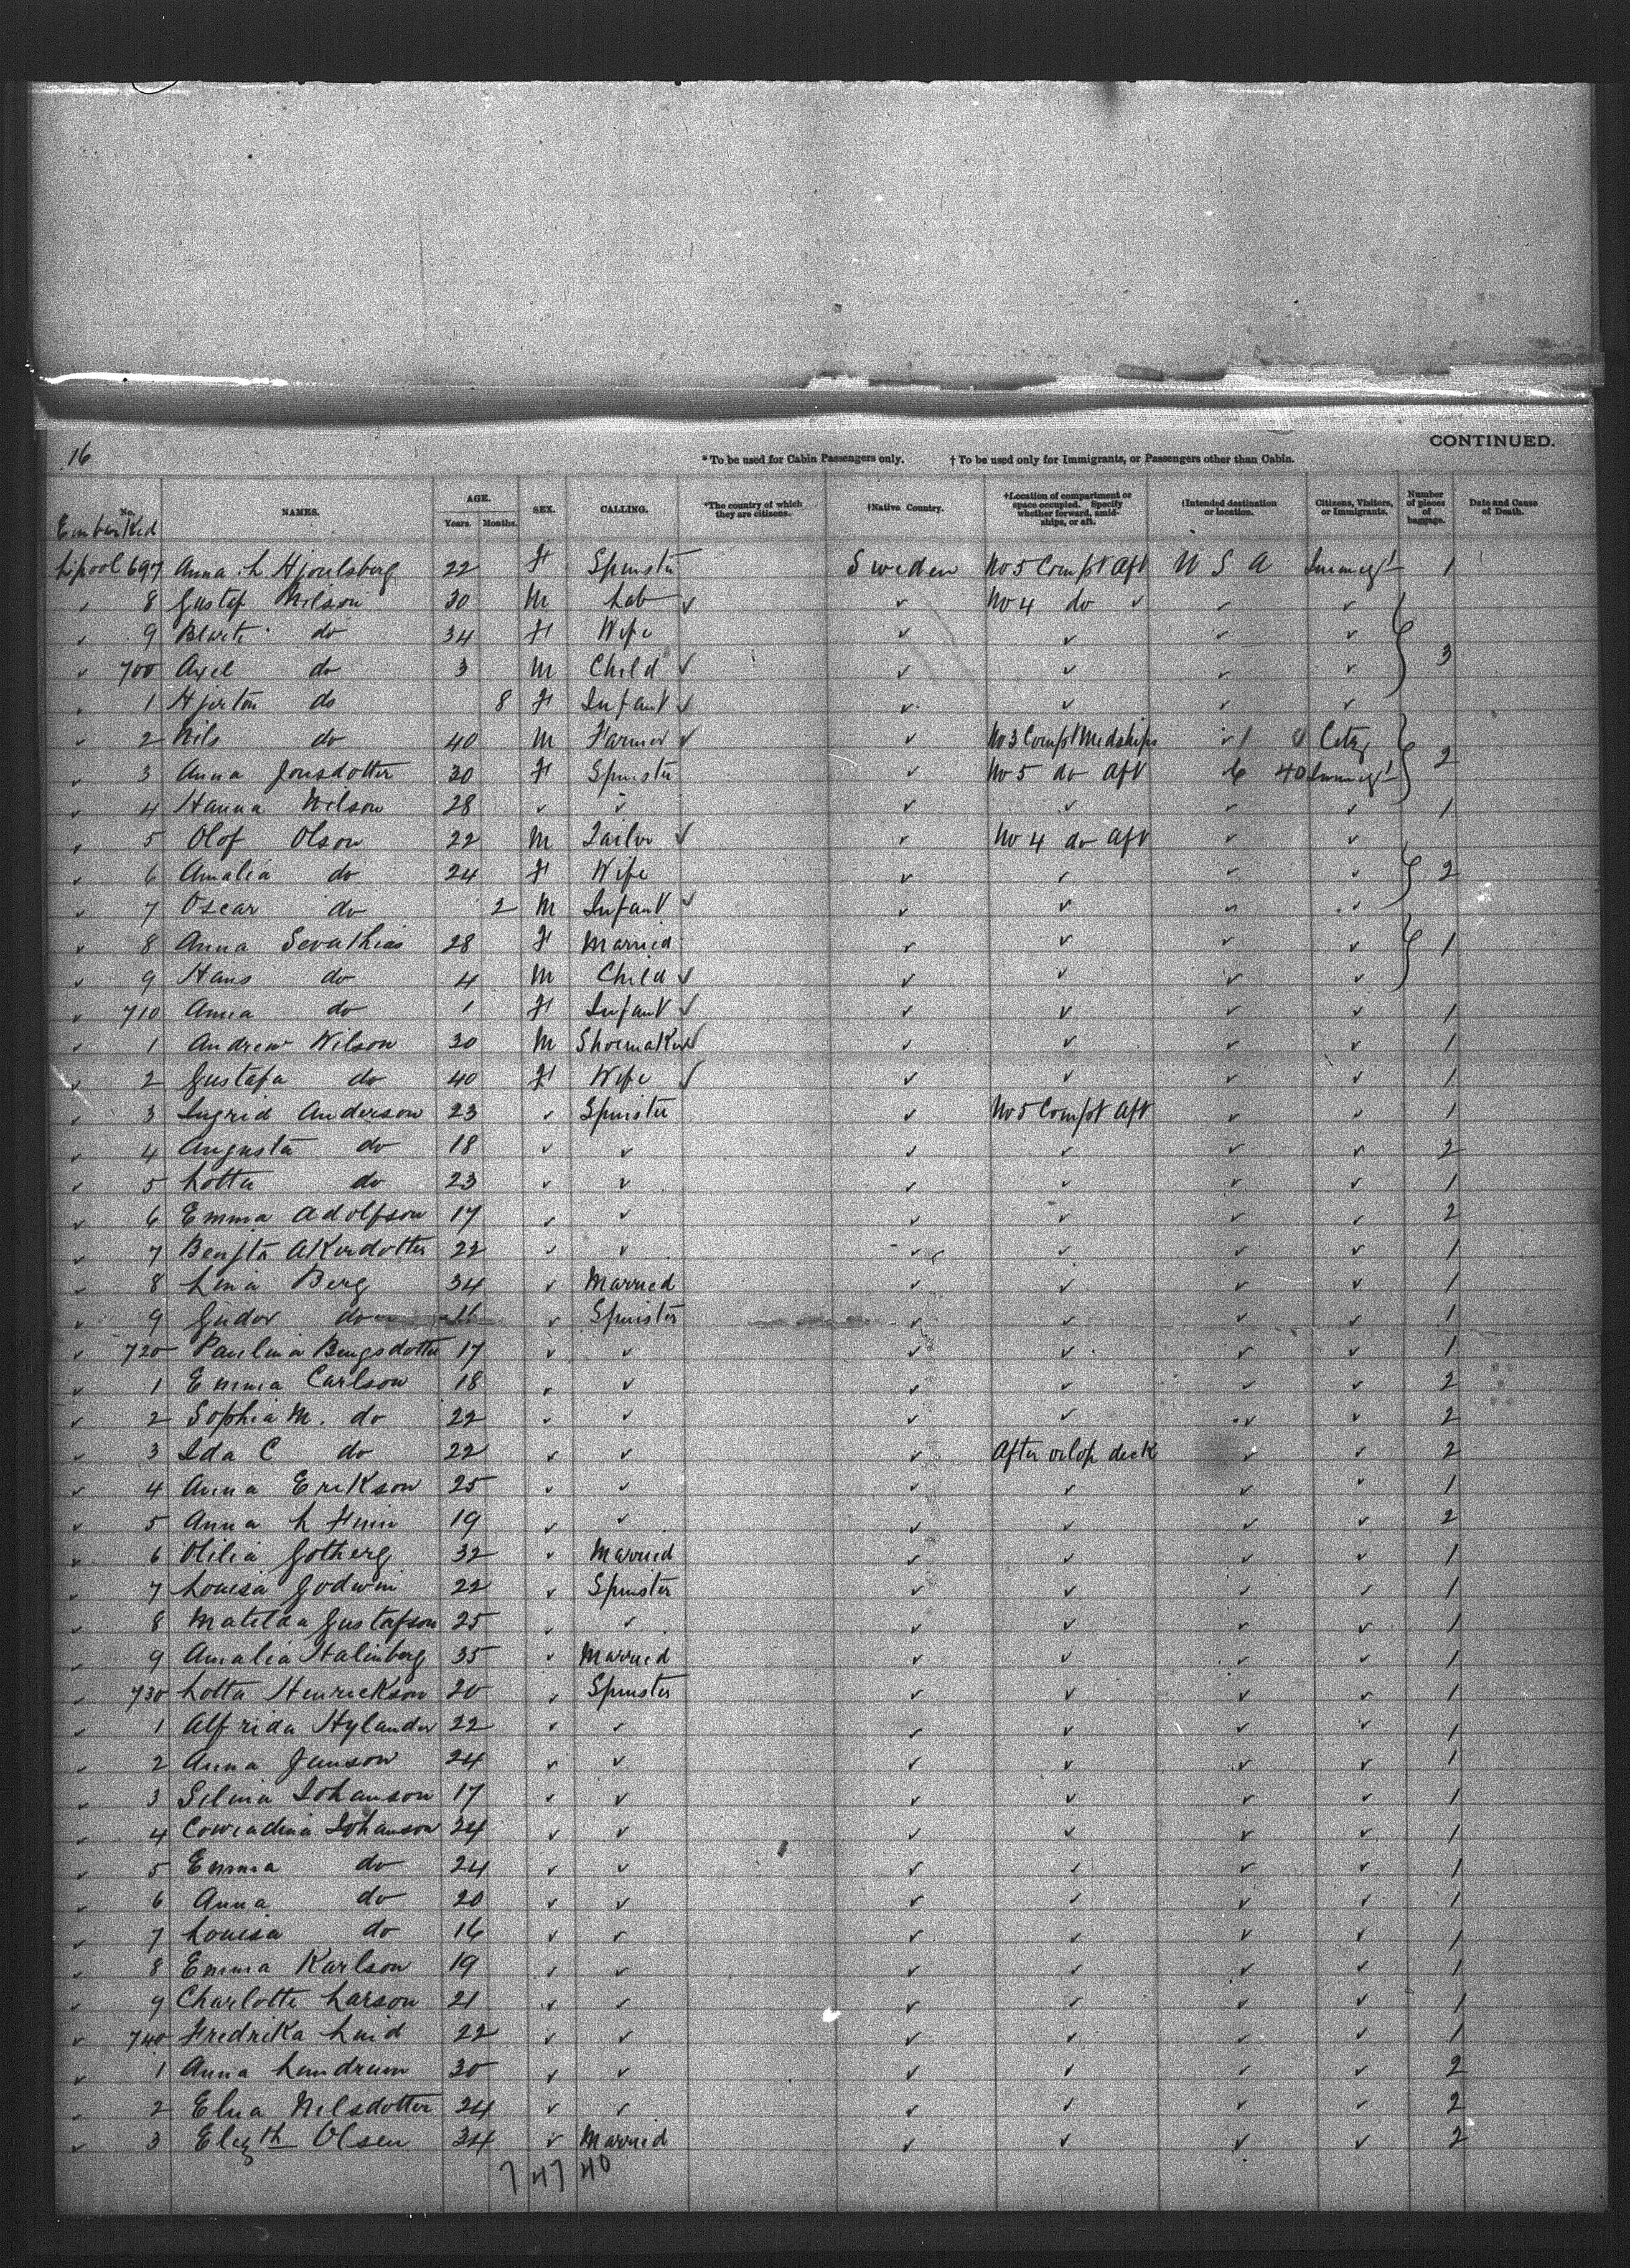 CONTINUED.
16 * To be used for Cabin Passengers only. † To be used only for Immigrants, or Passengers other than Cabin.
No. NAMES. AGE. Years. Months. SEX. CALLING. *The country of which they are citizens. †Native Country. †Location of compartment or space occupied. Specify whether forward, amidships, or aft. †Intended destination or location. Citizens, Visitors, or Immigrants. Number of pieces of baggage. Date and Cause of Death.
Embarked
L'pool 697 Anna L Hjoulsberg 22 F Spinster Sweden No 5 Compt Aft U S A Immigt 1
✓ 8 Gustaf Nilson 30 M Lab ✓ ✓ No 4 do ✓ ✓ ✓
✓ 9 do 34 F Wife ✓ ✓ ✓ ✓ 3
✓ 700 Axel do 3 M Child ✓ ✓ ✓ ✓ ✓
✓ 1 do 8 F Infant ✓ ✓ ✓ ✓ ✓
✓ 2 Nils do 40 M Farmer ✓ ✓ No 3 Compt Midships ✓ City
✓ 3 Anna Jonsdotter 30 F Spinster ✓ No 5 do Aft 40 Immigt 2
✓ 4 Hanna Nilson 28 ✓ ✓ ✓ ✓ ✓ ✓ 1
✓ 5 Olof Olson 22 M Tailor ✓ ✓ No 4 do Aft ✓ ✓
✓ 6 Amalia do 24 F Wife ✓ ✓ ✓ ✓ 2
✓ 7 Oscar do 2 M Infant ✓ ✓ ✓ ✓ ✓
✓ 8 Anna 28 F Married ✓ ✓ ✓ ✓ 1
✓ 9 Hans do 4 M Child ✓ ✓ ✓ ✓ ✓
✓ 710 Anna do 1 F Infant ✓ ✓ ✓ ✓ ✓ 1
✓ 1 Andrew Wilson 30 M Shoemaker ✓ ✓ ✓ ✓ ✓ 1
✓ 2 Gustafa do 40 F Wife ✓ ✓ ✓ ✓ ✓ 1
✓ 3 Ingrid Anderson 23 ✓ Spinster ✓ No 5 Compt Aft ✓ ✓ 1
✓ 4 Augusta do 18 ✓ ✓ ✓ ✓ ✓ ✓ 2
✓ 5 Lotta do 23 ✓ ✓ ✓ ✓ ✓ ✓ 1
✓ 6 Emma Adolfson 17 ✓ ✓ ✓ ✓ ✓ ✓ 2
✓ 7 Bengta Akerdotter 22 ✓ ✓ ✓ ✓ ✓ ✓ 1
✓ 8 Lina Berg 34 ✓ Married ✓ ✓ ✓ ✓ 1
✓ 9 Gudor do 16 ✓ Spinster ✓ ✓ ✓ ✓ 1
✓ 720 Paulina Bengsdotter 17 ✓ ✓ ✓ ✓ ✓ ✓ 1
✓ 1 Emma Carlson 18 ✓ ✓ ✓ ✓ ✓ ✓ 2
✓ 2 Sophia M. do 22 ✓ ✓ ✓ ✓ ✓ ✓ 2
✓ 3 Ida C do 22 ✓ ✓ ✓ After orlop deck ✓ ✓ 2
✓ 4 Anna Erikson 25 ✓ ✓ ✓ ✓ ✓ ✓ 1
✓ 5 Anna L Finn 19 ✓ ✓ ✓ ✓ ✓ ✓ 2
✓ 6 Otilia Gotherg 32 ✓ Married ✓ ✓ ✓ ✓ 1
✓ 7 Louisa Godwin 22 ✓ Spinster ✓ ✓ ✓ ✓ 1
✓ 8 Matilda Gustafson 25 ✓ ✓ ✓ ✓ ✓ ✓ 1
✓ 9 Amalia Halinberg 35 ✓ Married ✓ ✓ ✓ ✓ 1
✓ 730 Lotta Henrickson 20 ✓ Spinster ✓ ✓ ✓ ✓ 1
✓ 1 Alfrida Hylander 22 ✓ ✓ ✓ ✓ ✓ ✓ 1
✓ 2 Anna Janson 24 ✓ ✓ ✓ ✓ ✓ ✓ 1
✓ 3 Selma Johanson 17 ✓ ✓ ✓ ✓ ✓ ✓ 1
✓ 4 Conradina Johanson 24 ✓ ✓ ✓ ✓ ✓ ✓ 1
✓ 5 Emma do 24 ✓ ✓ ✓ ✓ ✓ ✓ 1
✓ 6 Anna do 20 ✓ ✓ ✓ ✓ ✓ ✓ 1
✓ 7 Louisa do 16 ✓ ✓ ✓ ✓ ✓ ✓ 1
✓ 8 Emma Karlson 19 ✓ ✓ ✓ ✓ ✓ ✓ 1
✓ 9 Charlotte Larson 21 ✓ ✓ ✓ ✓ ✓ ✓ 1
✓ 740 Fredrika Lind 22 ✓ ✓ ✓ ✓ ✓ ✓ 1
✓ 1 Anna Lundrum 30 ✓ ✓ ✓ ✓ ✓ ✓ 2
✓ 2 Elna Nilsdotter 24 ✓ ✓ ✓ ✓ ✓ ✓ 2
✓ 3 Elizth Olsen 34 ✓ Married ✓ ✓ ✓ ✓ 2
7 47 40